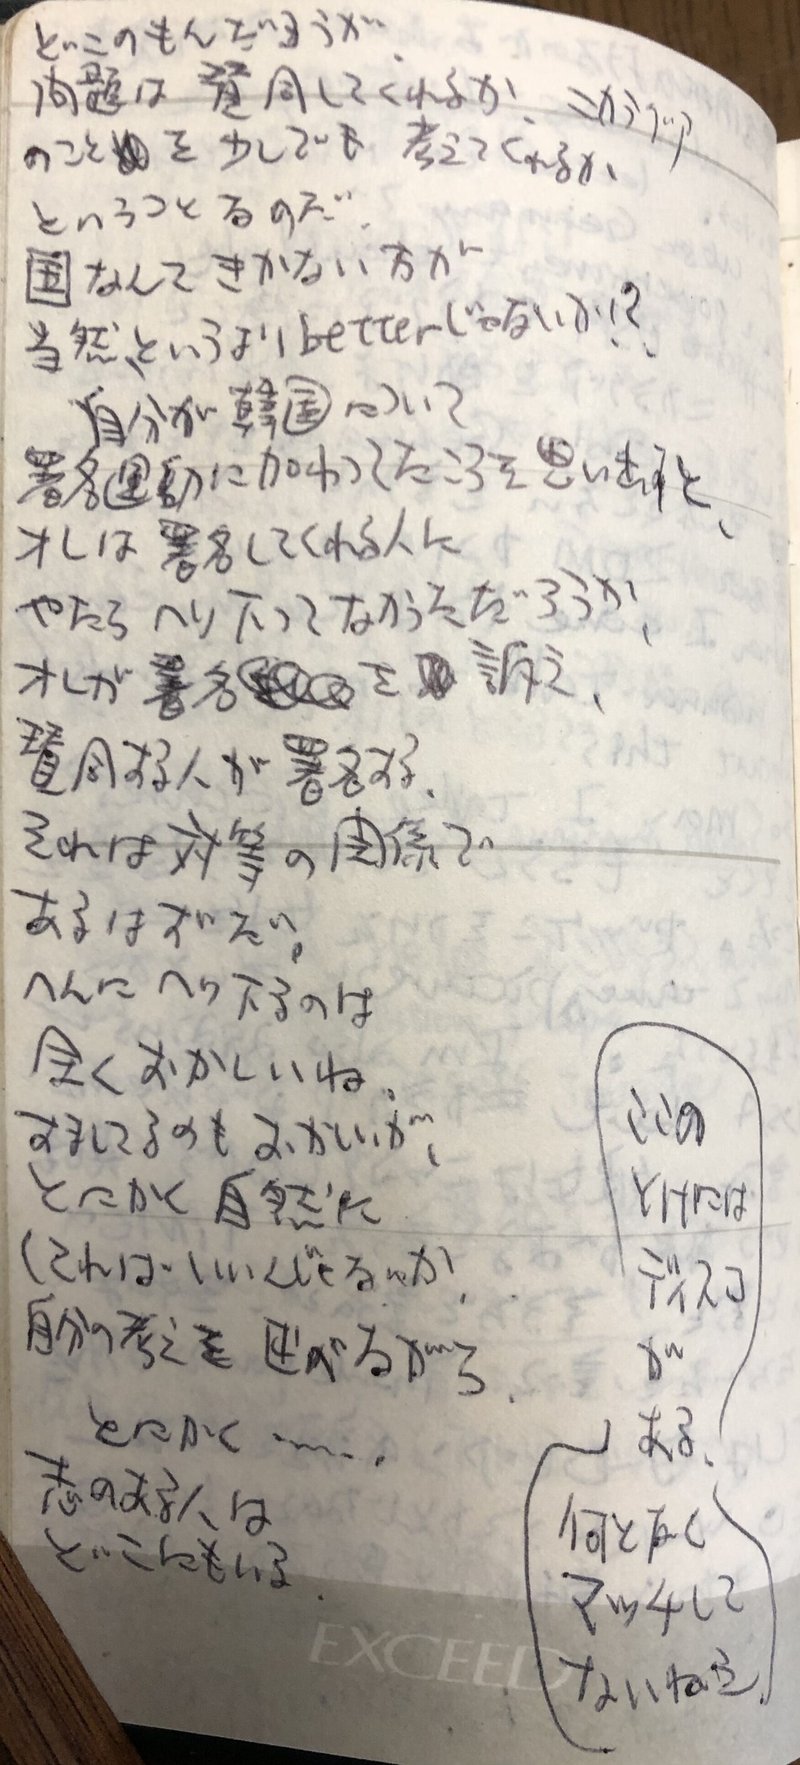 どこのもんだろうが、
問題は賛同してくれるか、ニカラグア
のことを少しでも考えてくれるか、
というこトなのだ。
国なんてきかない方が
当然、というよりbetterじゃないか!?
自分が韓国について
署名運動に加わってたころを思い出すと、
オレは署名してくれる人に
やたらへり下ってなかっただろうか、
オレが署名を訴え、
賛同する人が署名する。
それは対等の関係で
あるはずだ。
へんにへり下るのは
全くおかしいね。
すましてるのもおかしいが、
とにかく自然に
(これはいいんじゃないか、
自分の考えを述べながら、
とにかく
志のある人は
どこにもいる。
ここの
とけには
ディスコ
が
ある。
何となく
マッチして
ないねえ。
EXCEED